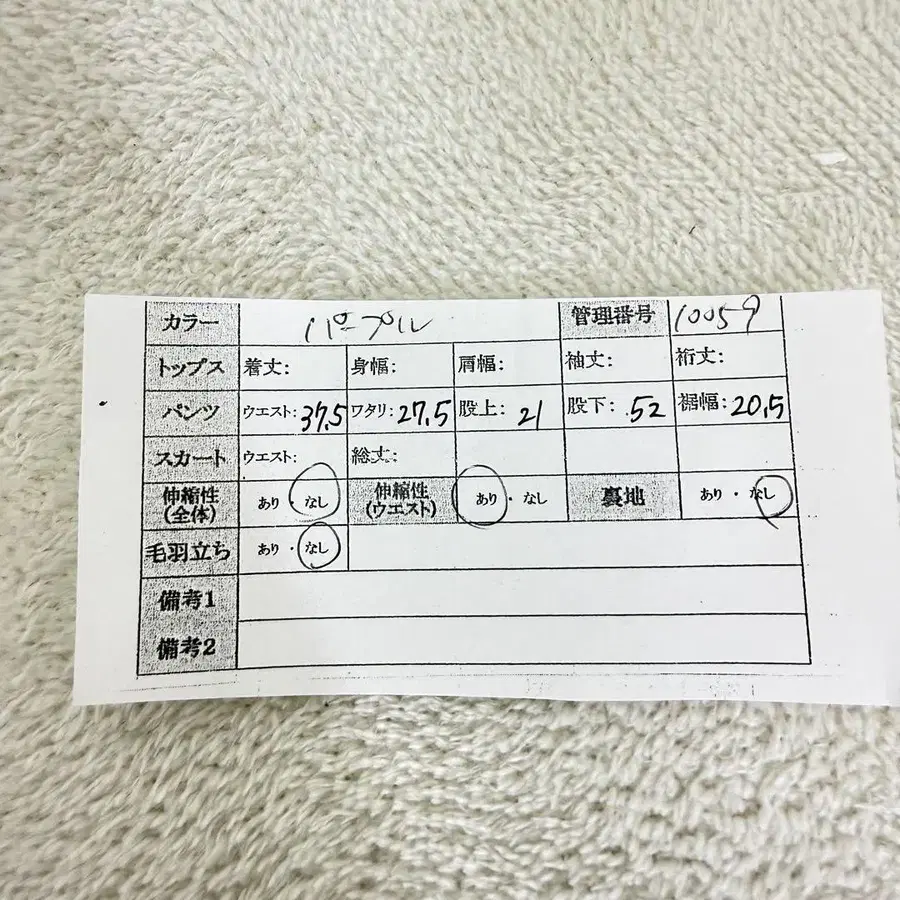 カラー パープル 管理番号 10059
トップス 着丈: 身幅: 肩幅: 袖丈: 裄丈:
パンツ ウエスト: 37.5 ワタリ: 27.5 股上: 21 股下: 52 裾幅: 20.5
スカート ウエスト: 総丈:
伸縮性(全体) あり なし 伸縮性(ウエスト) あり・なし 裏地 あり・なし
毛羽立ち あり・なし
備考1
備考2